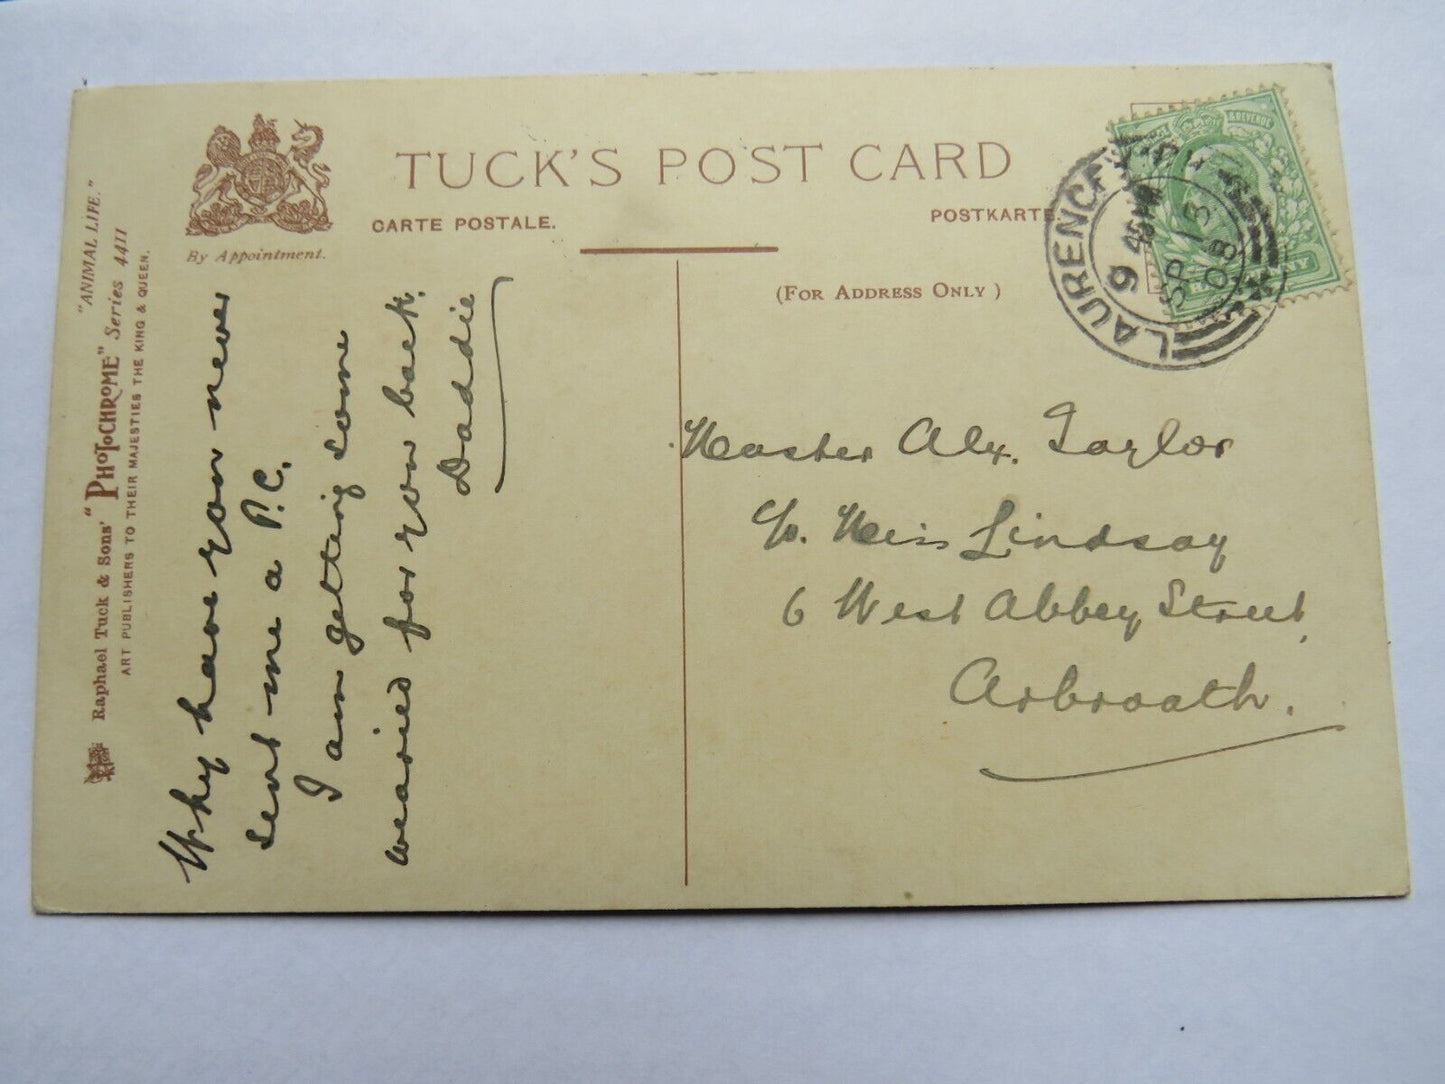 TUCK'S POST CARD
CARTE POSTALE.
POSTKARTE.
By Appointment.
(FOR ADDRESS ONLY)
"ANIMAL LIFE."
Raphael Tuck & Sons' "PHOTOCHROME" Series 4411
ART PUBLISHERS TO THEIR MAJESTIES THE KING & QUEEN.
Why have you never
sent me a P.C.
I am getting some
wearied for you back.
Daddie
& REVENUE
LAURENCE
9 45
SP 13
08
Master Alex. Taylor
c/o. Miss Lindsay
6 West Abbey Street,
Arbroath.